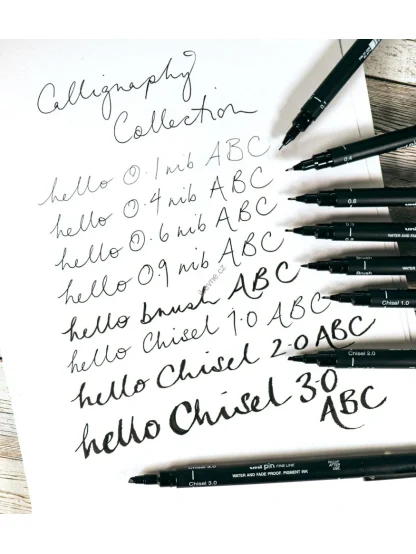 Calligraphy
Collection
hello 0.1 nib ABC
hello 0.4 nib ABC
hello 0.6 nib ABC
hello 09 nib ABC
hello brush ABC
hello Chisel 1.0 ABC
hello Chisel 2.0 ABC
hello Chisel 3.0
ABC
0.1
0.4
0.6
Brush
Chisel 1.0
Chisel 2.0
Chisel 3.0
uni pin FINE LINE
WATER AND FADE PROOF, PIGMENT INK